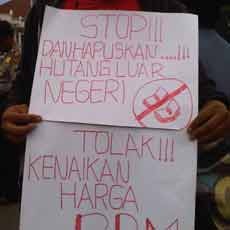 STOP!!!
DAN HAPUSKAN......!!!
HUTANG LUAR
NEGERI
TOLAK!!!
KENAIKAN
HARGA
BBM